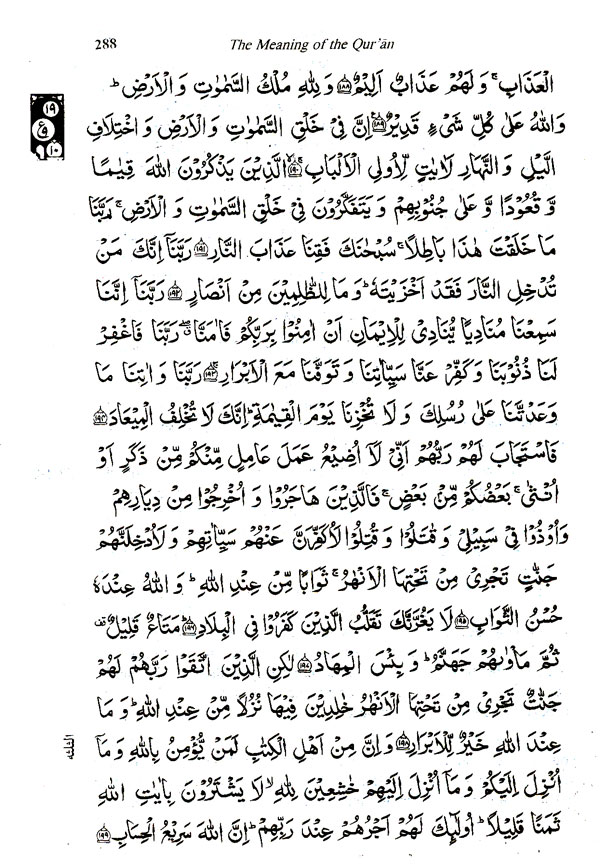 288
The Meaning of the Qur'ān
الْعَذَابِ ۚ وَلَهُمْ عَذَابٌ اَلِيْمٌ ﴿۱۸۸﴾ وَلِلّٰهِ مُلْكُ السَّمٰوٰتِ وَالْاَرْضِ ؕ
وَاللّٰهُ عَلٰى كُلِّ شَىْءٍ قَدِيْرٌ ﴿۱۸۹﴾ اِنَّ فِىْ خَلْقِ السَّمٰوٰتِ وَالْاَرْضِ وَاخْتِلَافِ
الَّيْلِ وَالنَّهَارِ لَاٰيٰتٍ لِّاُولِى الْاَلْبَابِ ﴿۱۹۰﴾ الَّذِيْنَ يَذْكُرُوْنَ اللّٰهَ قِيٰمًا
وَّ قُعُوْدًا وَّ عَلٰى جُنُوْبِهِمْ وَيَتَفَكَّرُوْنَ فِىْ خَلْقِ السَّمٰوٰتِ وَالْاَرْضِ ۚ رَبَّنَا
مَا خَلَقْتَ هٰذَا بَاطِلًا ۚ سُبْحٰنَكَ فَقِنَا عَذَابَ النَّارِ ﴿۱۹۱﴾ رَبَّنَاۤ اِنَّكَ مَنْ
تُدْخِلِ النَّارَ فَقَدْ اَخْزَيْتَهٗ ؕ وَمَا لِلظّٰلِمِيْنَ مِنْ اَنْصَارٍ ﴿۱۹۲﴾ رَبَّنَاۤ اِنَّنَا
سَمِعْنَا مُنَادِيًا يُّنَادِىْ لِلْاِيْمَانِ اَنْ اٰمِنُوْا بِرَبِّكُمْ فَاٰمَنَّا ۖ رَبَّنَا فَاغْفِرْ
لَنَا ذُنُوْبَنَا وَكَفِّرْ عَنَّا سَيِّاٰتِنَا وَتَوَفَّنَا مَعَ الْاَبْرَارِ ﴿۱۹۳﴾ رَبَّنَا وَاٰتِنَا مَا
وَعَدْتَّنَا عَلٰى رُسُلِكَ وَلَا تُخْزِنَا يَوْمَ الْقِيٰمَةِ ؕ اِنَّكَ لَا تُخْلِفُ الْمِيْعَادَ ﴿۱۹۴﴾
فَاسْتَجَابَ لَهُمْ رَبُّهُمْ اَنِّىْ لَاۤ اُضِيْعُ عَمَلَ عَامِلٍ مِّنْكُمْ مِّنْ ذَكَرٍ اَوْ
اُنْثٰى ۚ بَعْضُكُمْ مِّنْۢ بَعْضٍ ۚ فَالَّذِيْنَ هَاجَرُوْا وَاُخْرِجُوْا مِنْ دِيَارِهِمْ
وَاُوْذُوْا فِىْ سَبِيْلِىْ وَقٰتَلُوْا وَقُتِلُوْا لَاُكَفِّرَنَّ عَنْهُمْ سَيِّاٰتِهِمْ وَلَاُدْخِلَنَّهُمْ
جَنّٰتٍ تَجْرِىْ مِنْ تَحْتِهَا الْاَنْهٰرُ ۚ ثَوَابًا مِّنْ عِنْدِ اللّٰهِ ؕ وَاللّٰهُ عِنْدَهٗ
حُسْنُ الثَّوَابِ ﴿۱۹۵﴾ لَا يَغُرَّنَّكَ تَقَلُّبُ الَّذِيْنَ كَفَرُوْا فِى الْبِلَادِ ﴿۱۹۶﴾ مَتَاعٌ قَلِيْلٌ
ثُمَّ مَاْوٰىهُمْ جَهَنَّمُ ؕ وَبِئْسَ الْمِهَادُ ﴿۱۹۷﴾ لٰكِنِ الَّذِيْنَ اتَّقَوْا رَبَّهُمْ لَهُمْ
جَنّٰتٌ تَجْرِىْ مِنْ تَحْتِهَا الْاَنْهٰرُ خٰلِدِيْنَ فِيْهَا نُزُلًا مِّنْ عِنْدِ اللّٰهِ ؕ وَمَا
عِنْدَ اللّٰهِ خَيْرٌ لِّلْاَبْرَارِ ﴿۱۹۸﴾ وَاِنَّ مِنْ اَهْلِ الْكِتٰبِ لَمَنْ يُّؤْمِنُ بِاللّٰهِ وَمَاۤ
اُنْزِلَ اِلَيْكُمْ وَمَاۤ اُنْزِلَ اِلَيْهِمْ خٰشِعِيْنَ لِلّٰهِ ۙ لَا يَشْتَرُوْنَ بِاٰيٰتِ اللّٰهِ
ثَمَنًا قَلِيْلًا ؕ اُولٰٓئِكَ لَهُمْ اَجْرُهُمْ عِنْدَ رَبِّهِمْ ؕ اِنَّ اللّٰهَ سَرِيْعُ الْحِسَابِ ﴿۱۹۹﴾